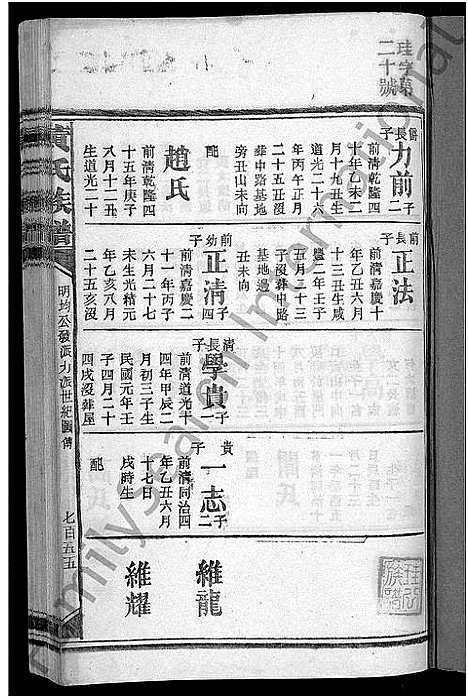 珪字第
二十號
爵長子
力前
二子
前清乾隆四
十年乙未二
月十九丑生
道光二十六
年丙午正月
二十五丑沒
葬中路基地
旁丑山未向
配
趙氏
前清乾隆四
十五年庚子
八月十二丑
生道光二十
前長子
正法
前清嘉慶十
年乙丑六月
十三丑生咸
豐三年壬子
五月二十三
子沒葬中路
基地邊
丑未向
前幼子
正清
四子
前清嘉慶二
十一年丙子
六月二十七
未生光緒元
年乙亥八月
二十五亥沒
清長子
學貴
一子
前清道光十
四年甲辰二
月初三子生
民國元年壬
子四月二十
四戌沒葬屋
貴子
一志
二子
前清同治四
年乙丑六月
十七日
戌時生
配
維龍
維耀
黃氏族譜
明均公發派力派世紀圖傳
七百五五
FamilySearch International